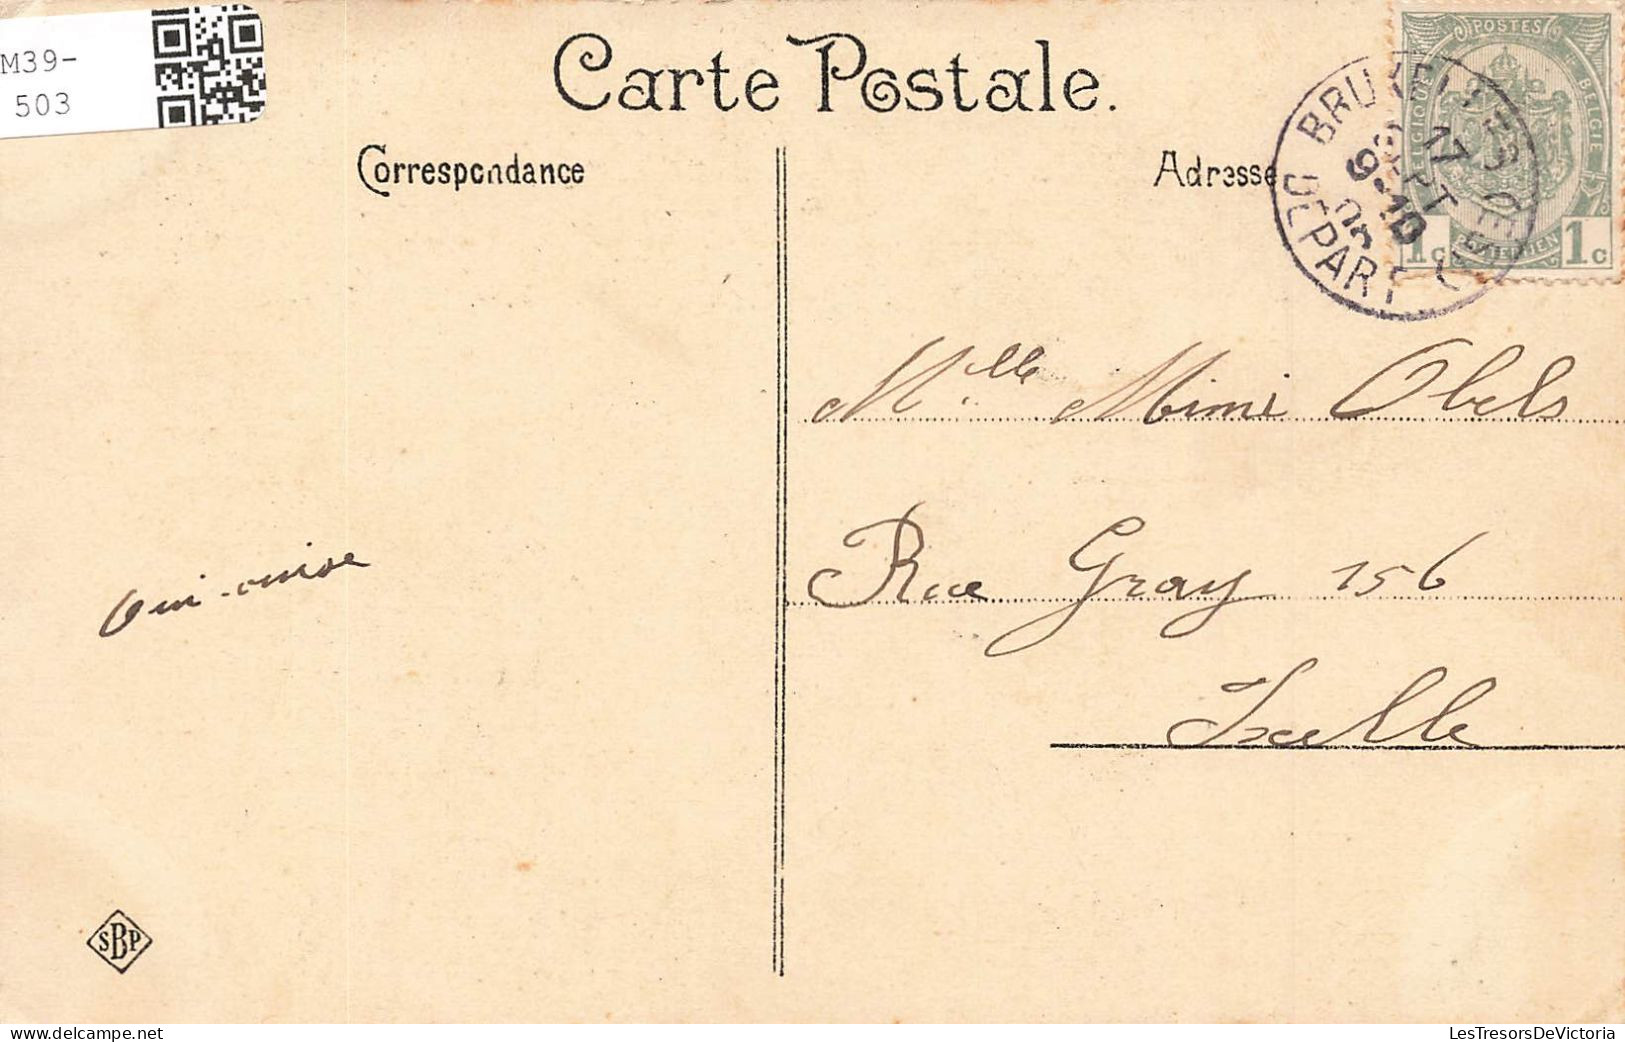 M39-
503
Carte Postale.
Correspondance
Adresse
POSTES
BELGIQUE
BELGIE
POSTERIJEN
1c
1c
BRUXELLES
17
SEPT
9-10
05
DEPART
Mlle Mimi Obels
Rue Gray 156
Ixelle
SBP
delcampe.net
LesTresorsDeVictoria